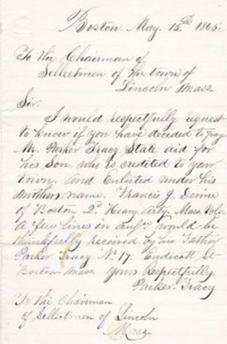 Boston. May. 15th 1865.
To the Chairman of
Sellectmen of the town of
Lincoln Mass
Sir.
I would respectfully request
to know if you have decided to pay
Mr. Parker Tracy State aid for
his Son who is credited to your
town. And Enlisted under his
Mothers name. Francis J. Devine
of Boston 2d Heavy Arty. Mass Vols.
A few lines in would be
thankfully received by his Father
Parker Tracy No 17. Endicott St
Boston Mass yours Respectfully
Parker. Tracy
To the Chairman
of Sellectmen of Lincoln
Mass.